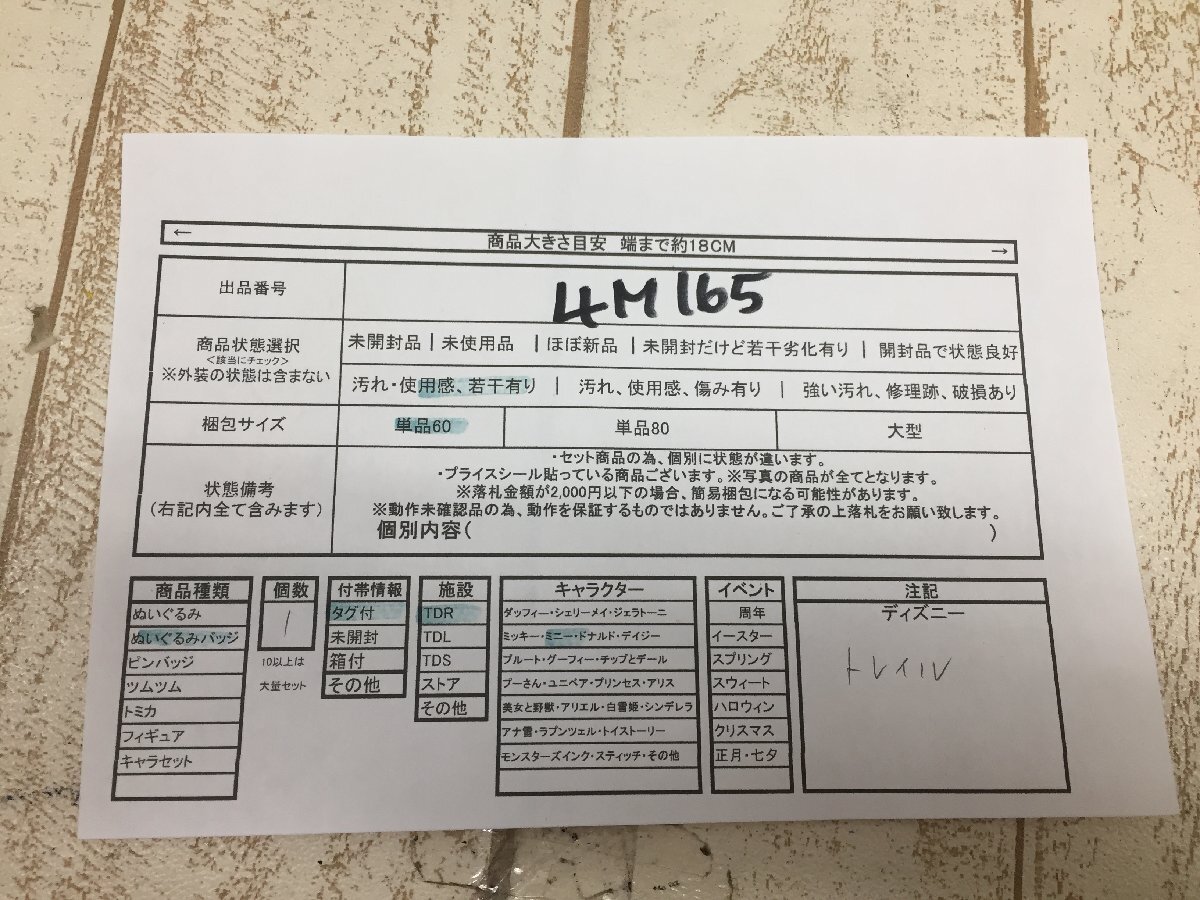 ← 商品大きさ目安 端まで約18CM →
出品番号 4M165
商品状態選択
<該当にチェック>
※外装の状態は含まない
未開封品 | 未使用品 | ほぼ新品 | 未開封だけど若干劣化有り | 開封品で状態良好
汚れ・使用感、若干有り | 汚れ、使用感、傷み有り | 強い汚れ、修理跡、破損あり
梱包サイズ 単品60 単品80 大型
状態備考
(右記内全て含みます)
・セット商品の為、個別に状態が違います。
・プライスシール貼っている商品ございます。※写真の商品が全てとなります。
※落札金額が2,000円以下の場合、簡易梱包になる可能性があります。
※動作未確認品の為、動作を保証するものではありません。ご了承の上落札をお願い致します。
個別内容( )
商品種類
ぬいぐるみ
ぬいぐるみバッジ
ピンバッジ
ツムツム
トミカ
フィギュア
キャラセット
個数
1
10以上は
大量セット
付帯情報
タグ付
未開封
箱付
その他
施設
TDR
TDL
TDS
ストア
その他
キャラクター
ダッフィー・シェリーメイ・ジェラトーニ
ミッキー・ミニー・ドナルド・デイジー
プルート・グーフィー・チップとデール
プーさん・ユニベア・プリンセス・アリス
美女と野獣・アリエル・白雪姫・シンデレラ
アナ雪・ラプンツェル・トイストーリー
モンスターズインク・スティッチ・その他
イベント
周年
イースター
スプリング
スウィート
ハロウィン
クリスマス
正月・七夕
注記
ディズニー
トレイル